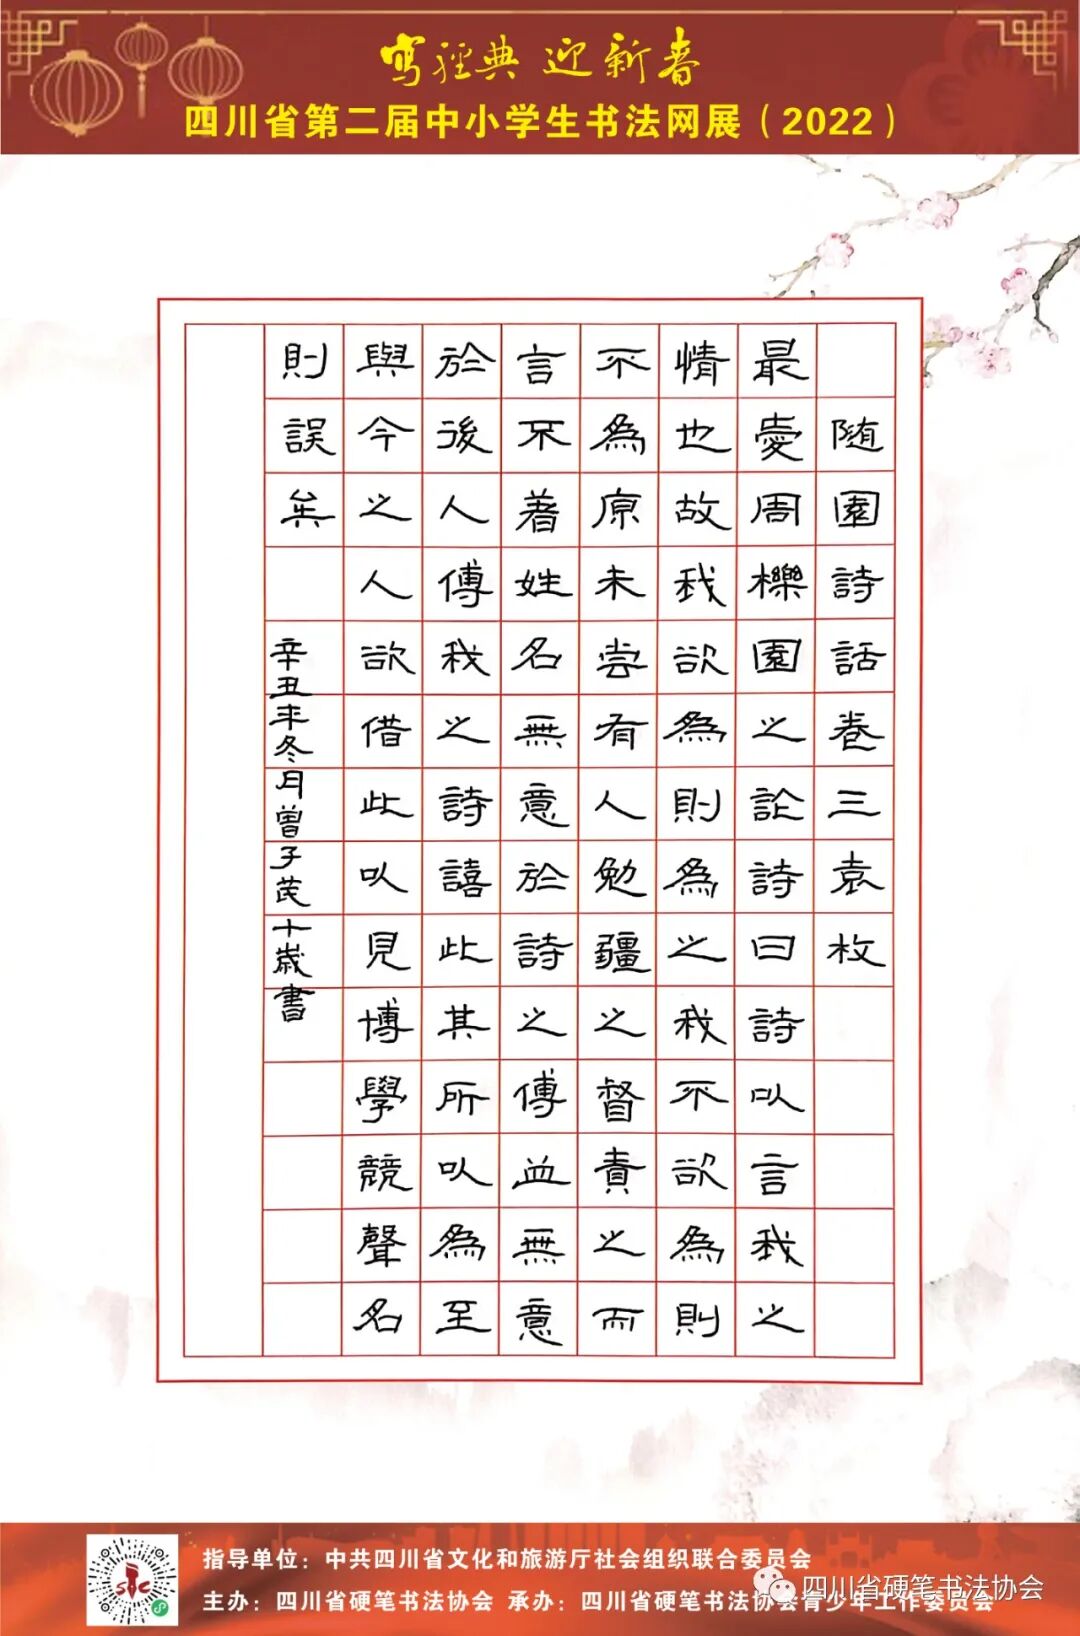 寫經典 迎新春
四川省第二届中小学生书法网展（2022）
随園詩話卷三袁枚
最愛周櫟園之論詩曰詩以言我之
情也故我欲為則為之我不欲為則
不為原未嘗有人勉彊之督責之而
言不著姓名無意於詩之傳並無意
於後人傳我之詩譆此其所以為至
與今之人欲借此以見博學競聲名
則誤矣
辛丑年冬月曾子芪十歲書
指导单位：中共四川省文化和旅游厅社会组织联合委员会
主办：四川省硬笔书法协会 承办：四川省硬笔书法协会青少年工作委员会
四川省硬笔书法协会